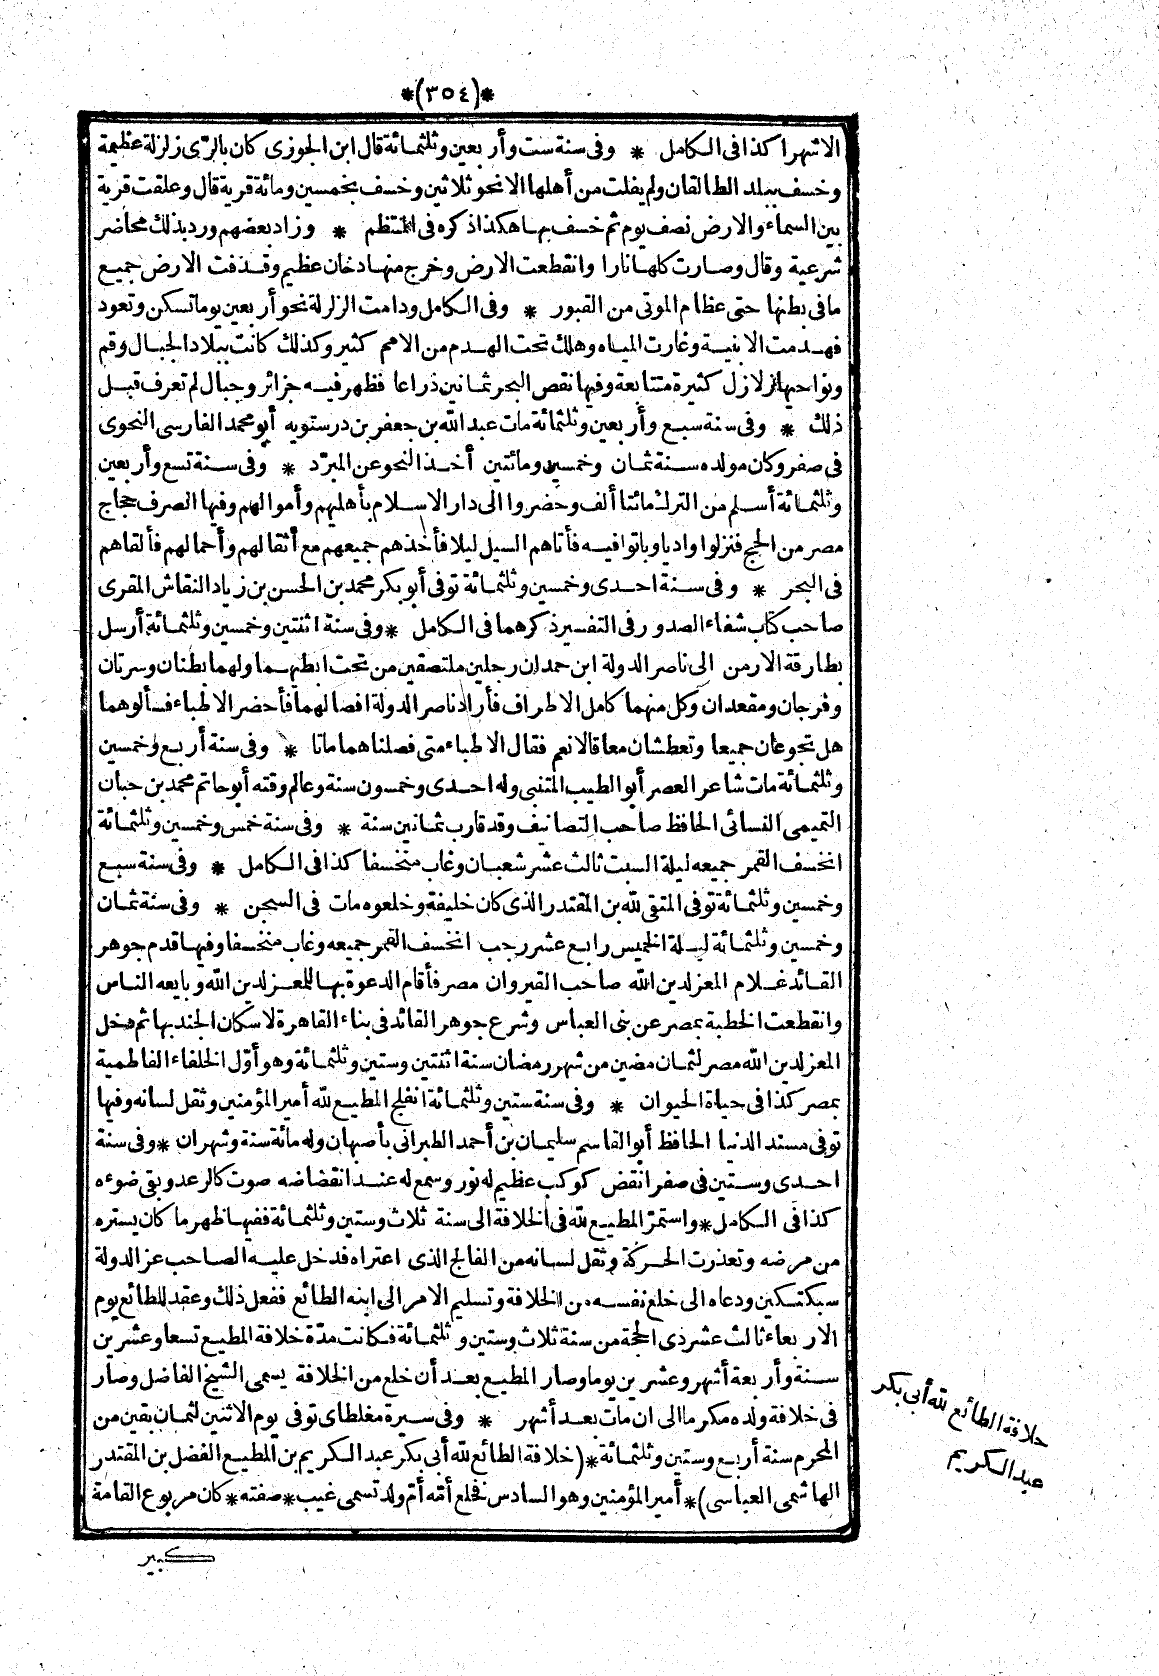 *(٣٥٤)*
الاشهرا كذا فى الكامل * وفى سنة ست وأربعين وثلثمائة قال ابن الجوزى كان بالرّى زلزلة عظيمة
وخسف ببلد الطالقان ولم يفلت من أهلها الا نحو ثلاثين وخسف بخمسين ومائة قرية قال وعلقت قرية
بين السماء والارض نصف يوم ثم خسف بها هكذا ذكره فى المنتظم * وزاد بعضهم ورد بذلك محاضر
شرعية وقال وصارت كلها نارا وانقطعت الارض وخرج منها دخان عظيم وقذفت الارض جميع
ما فى بطنها حتى عظام الموتى من القبور * وفى الكامل ودامت الزلزلة نحو أربعين يوما تسكن وتعود
فهدمت الابنية وغارت المياه وهلك تحت الهدم من الامم كثير وكذلك كانت ببلاد الجبال وقم
ونواحيها زلازل كثيرة متتابعة وفيها نقص البحر ثمانين ذراعا فظهر فيه جزائر وجبال لم تعرف قبل
ذلك * وفى سنة سبع وأربعين وثلثمائة مات عبد الله بن جعفر بن درستويه أبو محمد الفارسى النحوى
فى صفر وكان مولده سنة ثمان وخمسين ومائتين أخذ النحو عن المبرّد * وفى سنة تسع وأربعين
وثلثمائة أسلم من الترك مائتا ألف وحضروا الى دار الاسلام بأهليهم وأموالهم وفيها انصرف حجاج
مصر من الحج فنزلوا واديا وباتوا فيه فأتاهم السيل ليلا فأخذهم جميعهم مع أثقالهم وأحمالهم فألقاهم
فى البحر * وفى سنة احدى وخمسين وثلثمائة توفى أبو بكر محمد بن الحسن بن زياد النقاش المقرى
صاحب كتاب شفاء الصدور فى التفسير ذكرهما فى الكامل * وفى سنة اثنتين وخمسين وثلثمائة أرسل
بطارقة الارمن الى ناصر الدولة ابن حمدان رجلين ملتصقين من تحت ابطيهما ولهما بطنان وسرتان
وفرجان ومقعدان وكل منهما كامل الاطراف فأراد ناصر الدولة افصالهما فأحضر الاطباء فسألوهما
هل تجوعان جميعا وتعطشان معا قالا نعم فقال الاطباء متى فصلناهما ماتا * وفى سنة أربع وخمسين
وثلثمائة مات شاعر العصر أبو الطيب المتنبى وله احدى وخمسون سنة وعالم وقته أبو حاتم محمد بن حبان
التميمى الفسائى الحافظ صاحب التصانيف وقد قارب ثمانين سنة * وفى سنة خمس وخمسين وثلثمائة
انخسف القمر جميعه ليلة السبت ثالث عشر شعبان وغاب منخسفا كذا فى الكامل * وفى سنة سبع
وخمسين وثلثمائة توفى المتقى لله بن المقتدر الذى كان خليفة وخلعوه مات فى السجن * وفى سنة ثمان
وخمسين وثلثمائة ليلة الخميس رابع عشر رجب انخسف القمر جميعه وغاب منخسفا وفيها قدم جوهر
القائد غلام المعز لدين الله صاحب القيروان مصر فأقام الدعوة بها للمعز لدين الله وبايعه الناس
وانقطعت الخطبة بمصر عن بنى العباس وشرع جوهر القائد فى بناء القاهرة لاسكان الجند بها ثم دخل
المعز لدين الله مصر لثمان مضين من شهر رمضان سنة اثنتين وستين وثلثمائة وهو أوّل الخلفاء الفاطمية
بمصر كذا فى حياة الحيوان * وفى سنة ستين وثلثمائة انفلج المطيع لله أمير المؤمنين وثقل لسانه وفيها
توفى مسند الدنيا الحافظ أبو القاسم سليمان بن أحمد الطبرانى بأصبهان وله مائة سنة وشهران * وفى سنة
احدى وستين فى صفر انقض كوكب عظيم له نور وسمع له عند انقضاضه صوت كالرعد وبقى ضوءه
كذا فى الكامل * واستمرّ المطيع لله فى الخلافة الى سنة ثلاث وستين وثلثمائة ففيها ظهر ما كان يستره
من مرضه وتعذرت الحركة وثقل لسانه من الفالج الذى اعتراه فدخل عليه الصاحب عز الدولة
سبكتسكين ودعاه الى خلع نفسه من الخلافة وتسليم الامر الى ابنه الطائع ففعل ذلك وعقد للطائع يوم
الاربعاء ثالث عشر ذى الحجة من سنة ثلاث وستين وثلثمائة فكانت مدّة خلافة المطيع تسعا وعشرين
سنة وأربعة أشهر وعشرين يوما وصار المطيع بعد أن خلع من الخلافة يسمى الشيخ الفاضل وصار
فى خلافة ولده مكرما الى ان مات بعد أشهر * وفى سيرة مغلطاى توفى يوم الاثنين لثمان بقين من
المحرم سنة أربع وستين وثلثمائة * (خلافة الطائع لله أبى بكر عبد الكريم بن المطيع الفضل بن المقتدر
الهاشمى العباسى) * أمير المؤمنين وهو السادس فخلع أمّه أمّ ولد تسمى غيب * صفته * كان مربوع القامة
كبير
خلافة الطائع لله أبى بكر
عبد الكريم